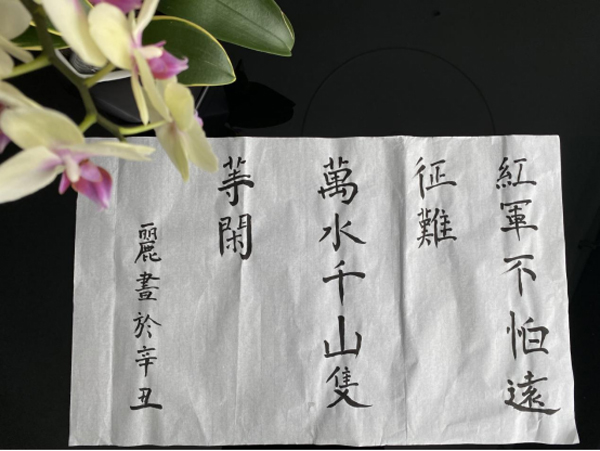 紅軍不怕遠
征難
萬水千山隻
等閑
麗晝於辛丑